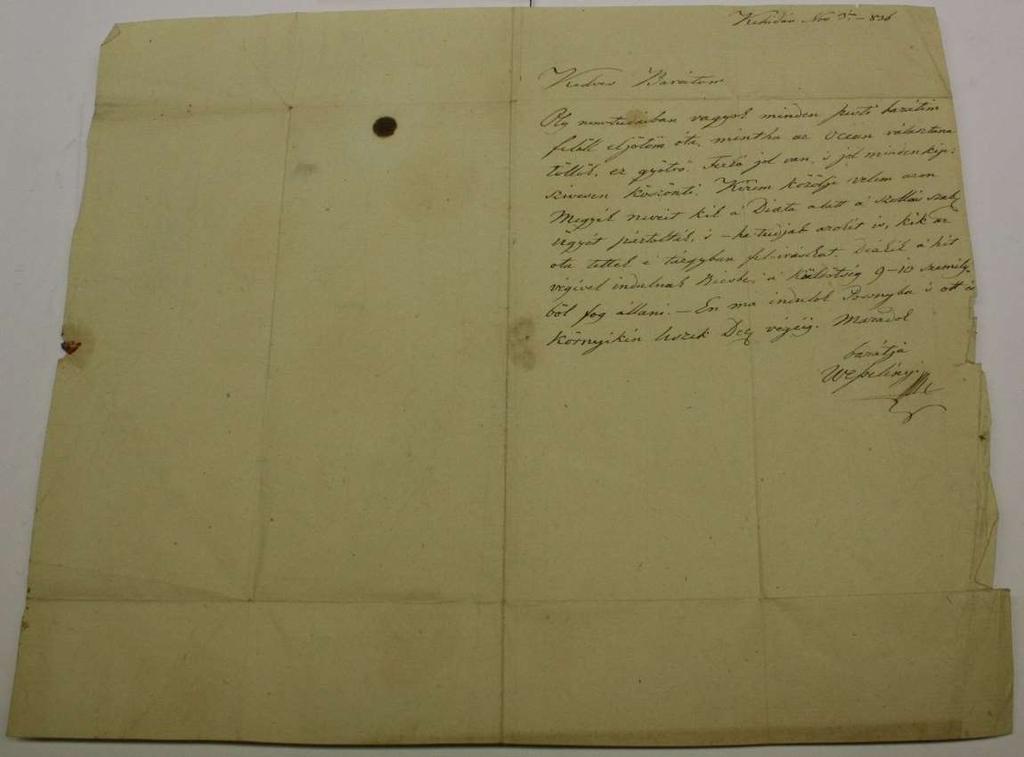 Kehidán Nov 3. – 836
Kedves Barátom
Oly nemtudásban vagyok minden pesti barátim
felöll eljötöm óta, mintha az Ocean választana
tölök, ez gyötrö. jol van, s jol
szivesen köszönti. Kérem közölje velem azon
Megyék neveit kik a Diaeta alatt a szollás szab.
ügyét pártolták, s – ha tudják azokét is, kik az
ota tettek e tárgyban fel-irásokat. Deákék a hét
végivel indulnak Bécsbe, s a küldöttség 9–10 személy
böl fog állani. – Én ma indulok Posonyba s ott s
környékén leszek végéig. Maradok
barátja
Wesselényi